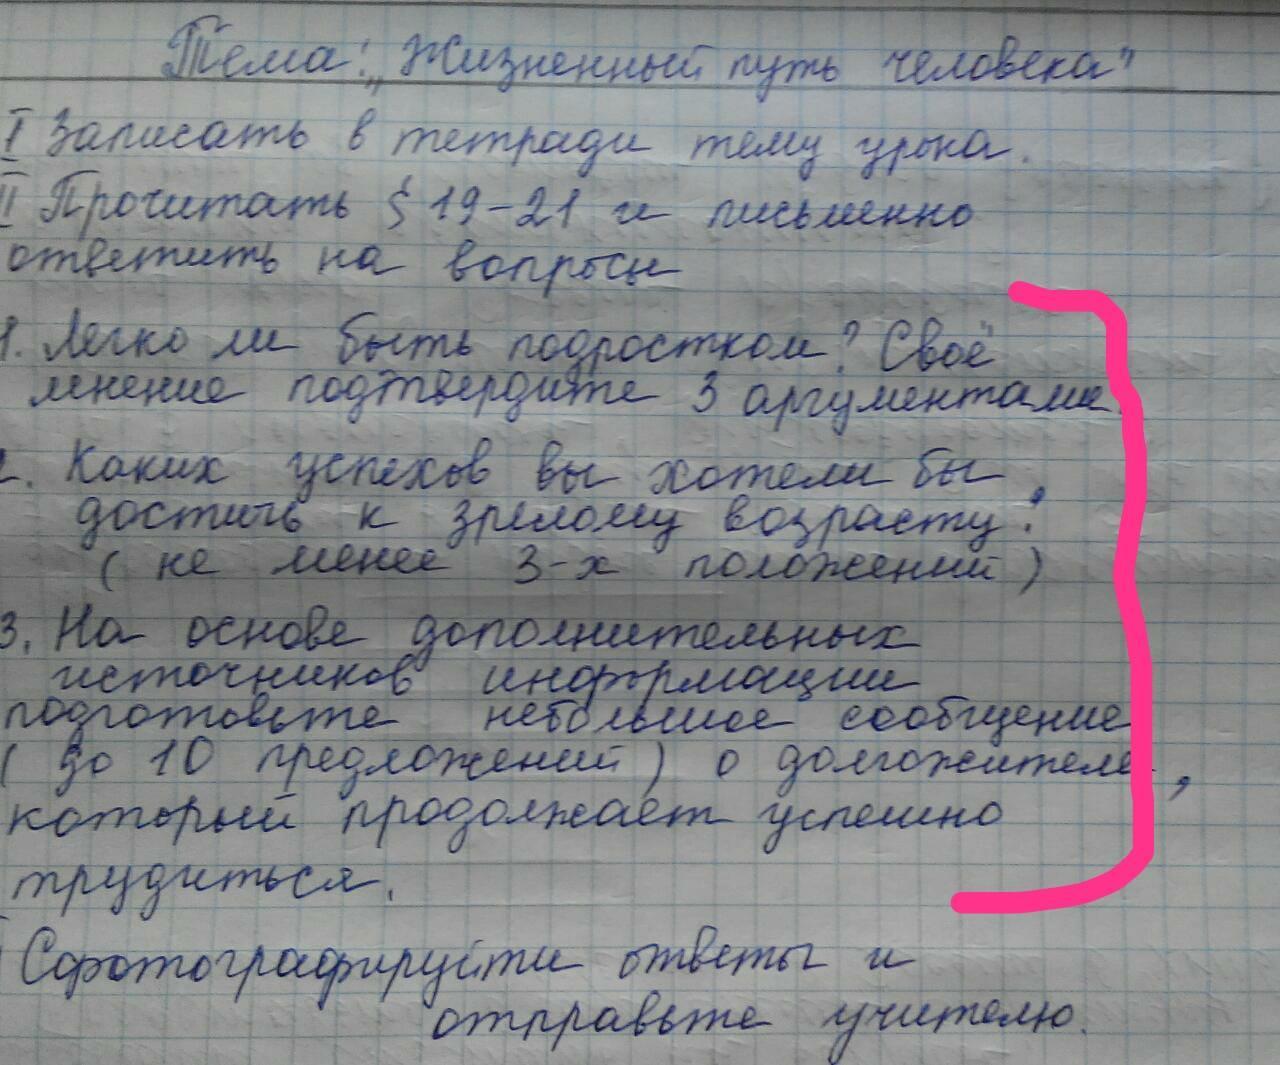 Тема: „Жизненный путь человека"
I Записать в тетради тему урока.
II Прочитать § 19-21 и письменно
ответить на вопросы
1. Легко ли быть подростком? Своё
мнение подтвердите 3 аргументами.
2. Каких успехов вы хотели бы
достичь к зрелому возрасту?
( не менее 3-х положений )
3. На основе дополнительных
источников информации
подготовьте небольшое сообщение
( до 10 предложений ) о долгожителе,
который продолжает успешно
трудиться.
Сфотографируйти ответы и
отправьте учителю.